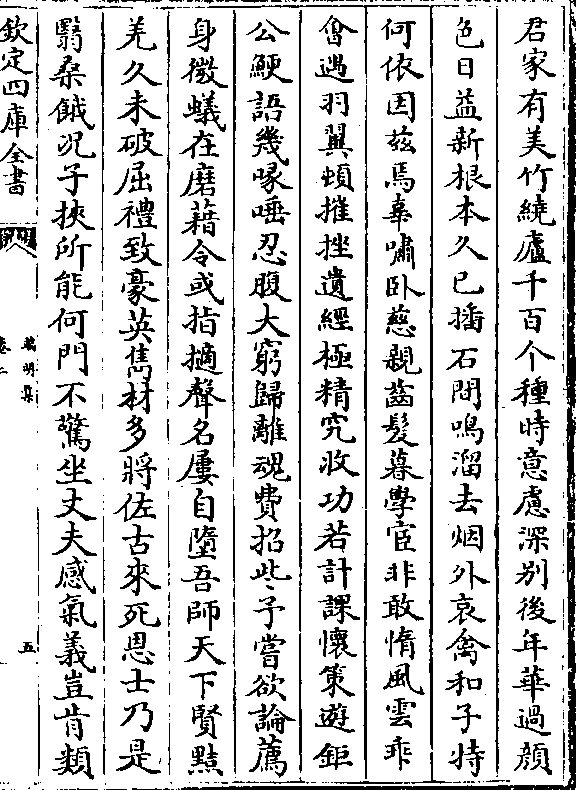 君家有美竹繞廬千百个種時意慮深别後年華過顔
色日益新根本久已播石間鳴溜去烟外哀禽和子持
何依因兹焉辜嘯臥慈親齒髮暮學宦非敢惰風雲乖
㑹遇羽翼頓摧挫遺經極精究收功若計課懷策遊鉅
公鯁語幾喙唾忍腹大窮歸離魂費招些予嘗欲論薦
身微蟻在磨藉令或指擿聲名屢自墮吾師天下賢㸃
羌久未破屈禮致豪英雋材多將佐古來死恩士乃是
翳桑餓况子挾所能何門不驚坐丈夫感氣義豈肯類
欽定四庫全書
卷二
五